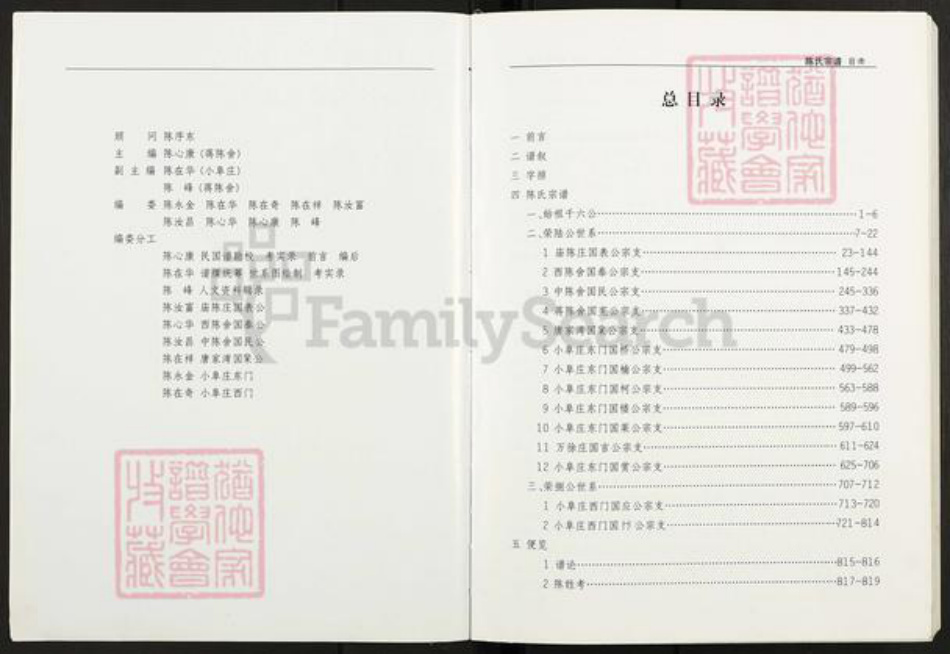 顾 问 陈序东
主 编 陈心康(蒋陈舍)
副主编 陈在华(小阜庄)
陈 峰(蒋陈舍)
编 委 陈永金 陈在华 陈在奇 陈在祥 陈汝富
陈汝昌 陈心华 陈心康 陈 峰
编委分工
陈心康 民国谱 考实录 前言 编后
陈在华 考实录
陈 峰 人文资料辑录
陈汝富 庙陈庄国表公
陈心华 西陈舍国泰公
陈汝昌 中陈舍国民公
陈在祥 唐家湾国 公
陈永金 小阜庄东门
陈在奇 小阜庄西门
FamilySearch
犹他家
谱學會
收藏
陈氏宗谱 目录
总目录
一 前言
二 谱叙
三 字排
四 陈氏宗谱
一、始祖千六公 1-6
二、荣陆公世系 7-22
1 庙陈庄国表公宗支 23-144
2 西陈舍国泰公宗支 145-244
3 中陈舍国民公宗支 245-336
4 蒋陈舍国 公宗支 337-432
5 唐家湾国 公宗支 433-478
6 小阜庄东门国桥公宗支 479-498
7 小阜庄东门国楠公宗支 499-562
8 小阜庄东门国柯公宗支 563-588
9 小阜庄东门国楼公宗支 589-596
10 小阜庄东门国 公宗支 597-610
11 万徐庄国吉公宗支 611-624
12 小阜庄东门国贯公宗支 625-706
三、荣 公世系 707-712
1 小阜庄西门国应公宗支 713-720
2 小阜庄西门国 公宗支 721-814
五 便览
1 谱论 815-816
2 陈姓考 817-819
犹他家
譜學會
收藏